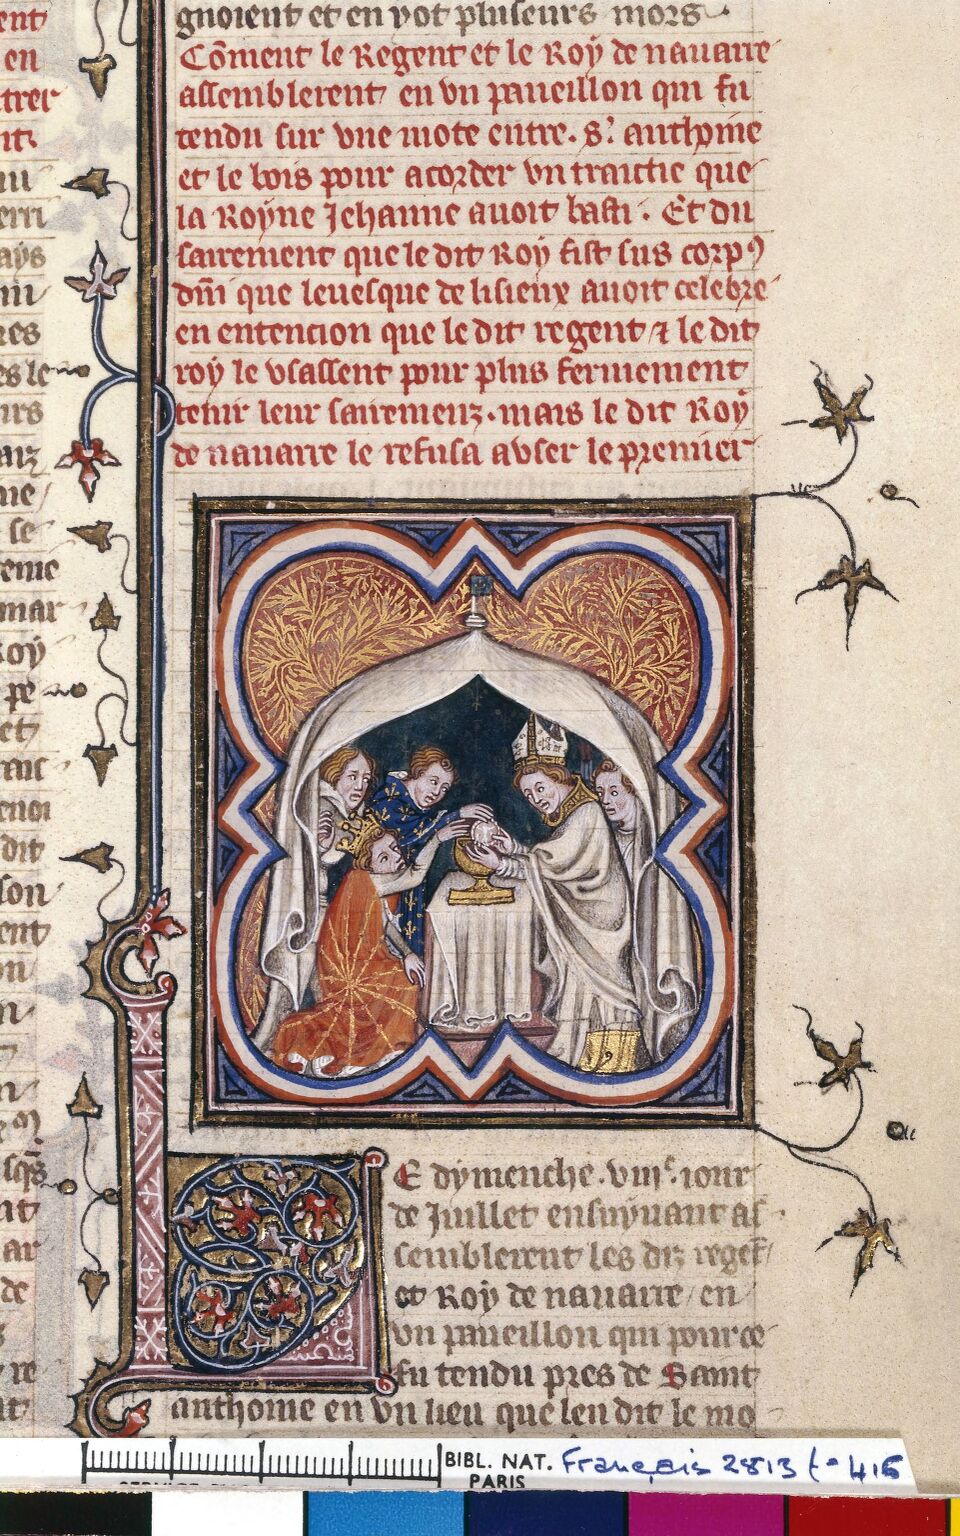 gnoient et en vot plusieurs mors
Cōment le Regent et le Roy de nauarre
assemblerent en vn paueillon qui fu
tendu sur vne mote entre . S. anthoine
et le bois pour acorder vn traictie que
la Royne Jehanne auoit basti . Et du
sairement que le dit Roy fist sus corpꝰ
dn̄i que leuesque de lisieux auoit celebre
en entencion que le dit regent ⁊ le dit
roy le vsassent pour plus fermement
tenir leur sairemenz . mais le dit Roy
de nauarre le refusa avser le premier
E dymenche . viii^e. iour
de Juillet ensuyuant as
semblerent les diz regēt
et Roy de nauarre / en
vn paueillon qui pour ce
fu tendu pres de Saint
anthoine en vn lieu que len dit le mo
ent
en
trer
ays
res
mar
Roy
pe
et
dit
son
ent
ar
de
re
BIBL. NAT. Français 2813 fo 416
PARIS